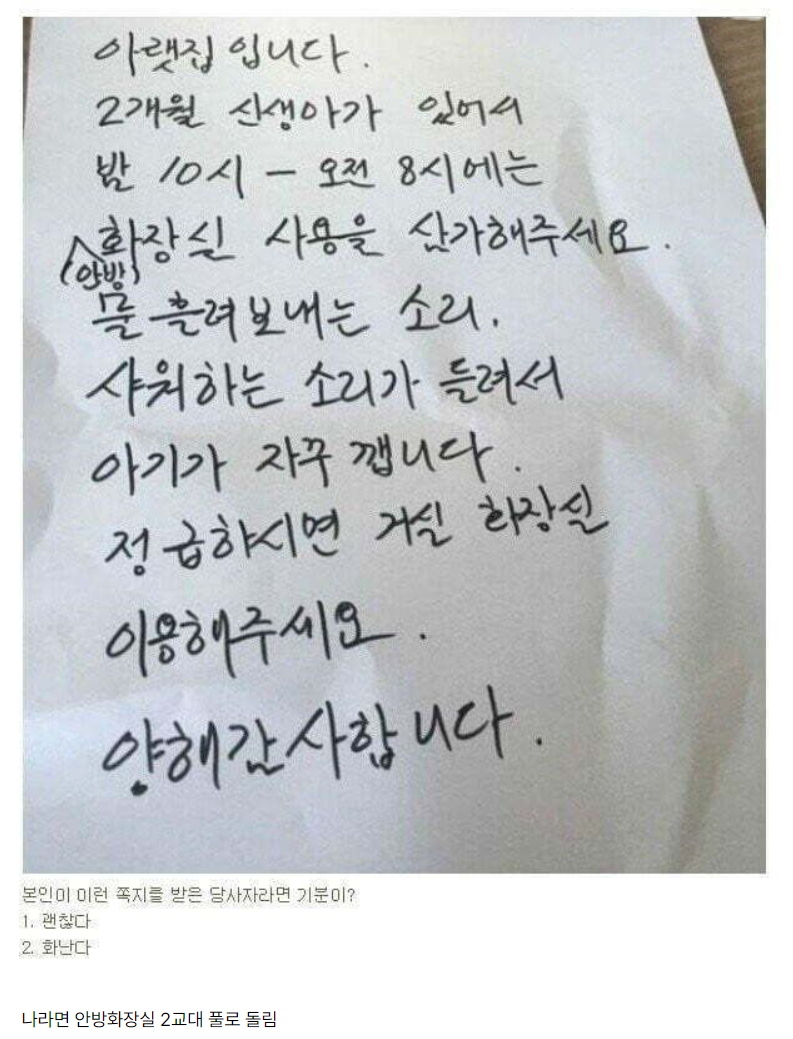 아랫집 입니다.
2개월 신생아가 있어서
밤 10시 - 오전 8시에는
(안방) 화장실 사용을 삼가해주세요.
물 흘려보내는 소리.
샤워하는 소리가 들려서
아기가 자꾸 깹니다.
정 급하시면 거실 화장실
이용해주세요.
양해감사합니다.
본인이 이런 쪽지를 받은 당사자라면 기분이?
1. 괜찮다
2. 화난다
나라면 안방화장실 2교대 풀로 돌림